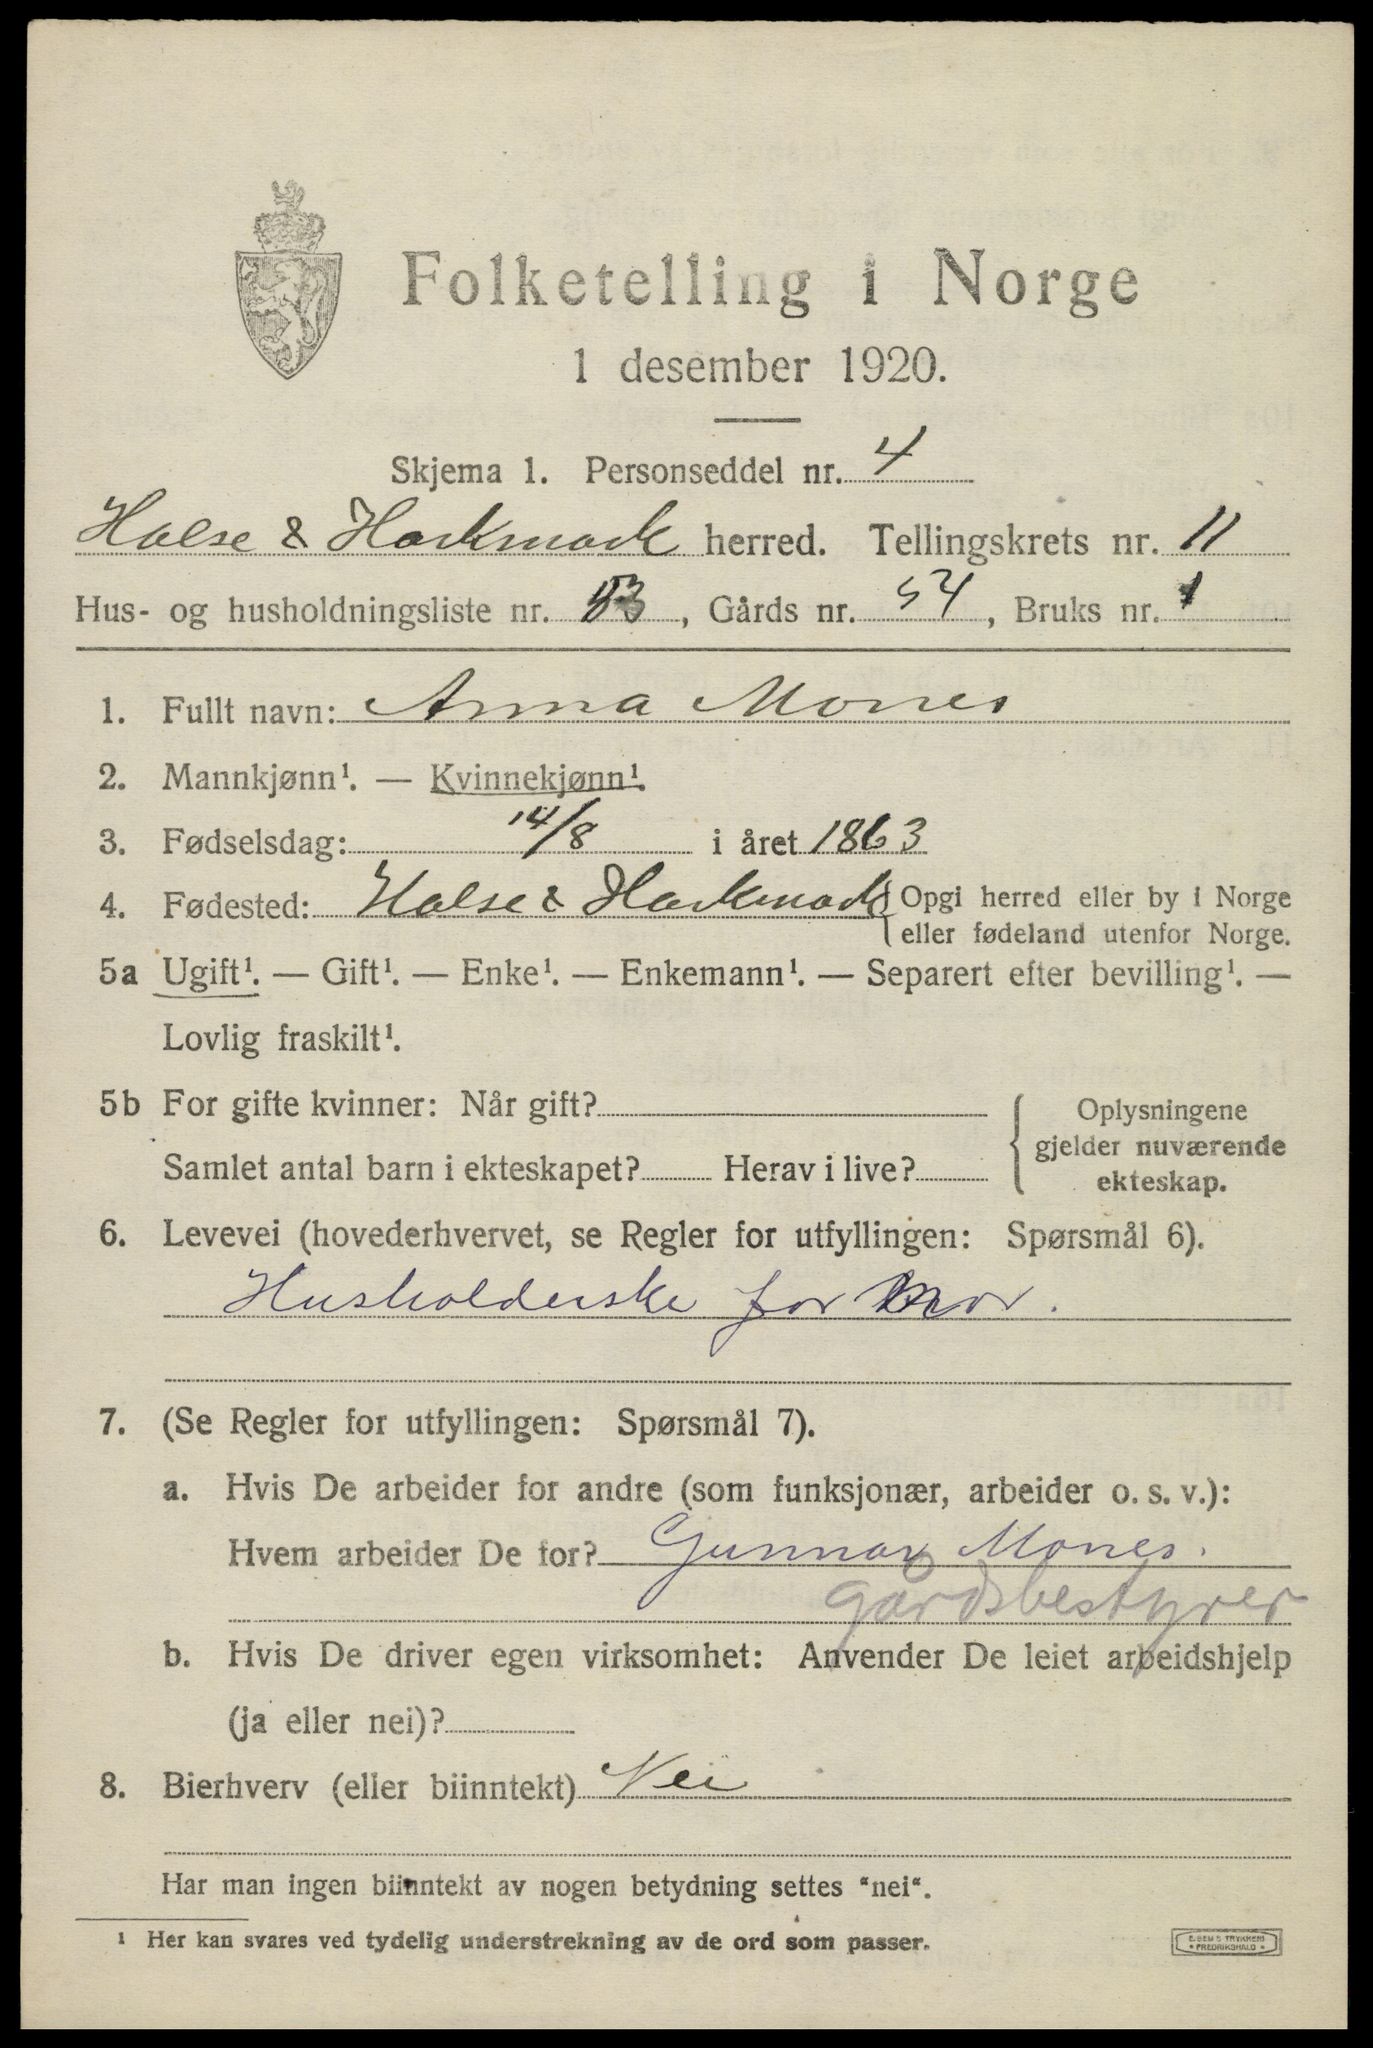 Folketelling i Norge
1 desember 1920.
Skjema 1. Personseddel nr. 4
Halse & Harkmark herred. Tellingskrets nr. 11
Hus- og husholdningsliste nr. 53, Gårds nr. 54, Bruks nr. 1
1. Fullt navn: Anna Mones
2. Mannkjønn¹. — Kvinnekjønn¹.
3. Fødselsdag: 14/8 i året 1863
4. Fødested: Halse & Harkmark { Opgi herred eller by i Norge
eller fødeland utenfor Norge.
5a Ugift¹. — Gift¹. — Enke¹. — Enkemann¹. — Separert efter bevilling¹. —
Lovlig fraskilt¹.
5b For gifte kvinner: Når gift?
Samlet antal barn i ekteskapet? Herav i live?
Oplysningene
gjelder nuværende
ekteskap.
6. Levevei (hovederhvervet, se Regler for utfyllingen: Spørsmål 6).
Husholderske for Mor.
7. (Se Regler for utfyllingen: Spørsmål 7).
a. Hvis De arbeider for andre (som funksjonær, arbeider o. s. v.):
Hvem arbeider De for? Gunnar Mones.
gårdsbestyrer
b. Hvis De driver egen virksomhet: Anvender De leiet arbeidshjelp
(ja eller nei)?
8. Bierhverv (eller biinntekt) Nei
Har man ingen biinntekt av nogen betydning settes "nei".
¹ Her kan svares ved tydelig understrekning av de ord som passer.